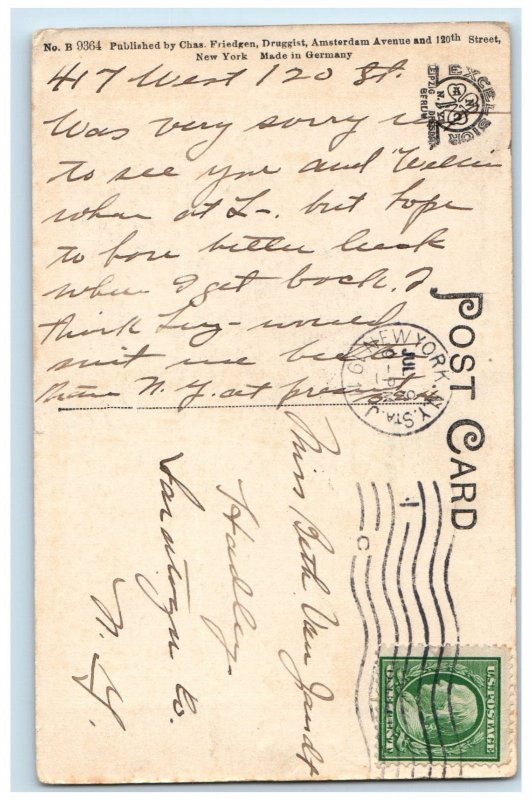 No. B 9364 Published by Chas. Friedgen, Druggist, Amsterdam Avenue and 120th Street,
New York Made in Germany
EXCELSIOR
LEIPZIG DRESDEN
BERLIN
417 West 120 St.
Was very sorry
to see you and
when at L-. but hope
to have better luck
when I get back. I
think Luz- would
suit me
than N.Y. at present
POST CARD
NEW YORK, N.Y. STA. J
JUL
Miss Beth Van Zandt
Hadley
Saratoga Co.
N.Y.
U.S. POSTAGE